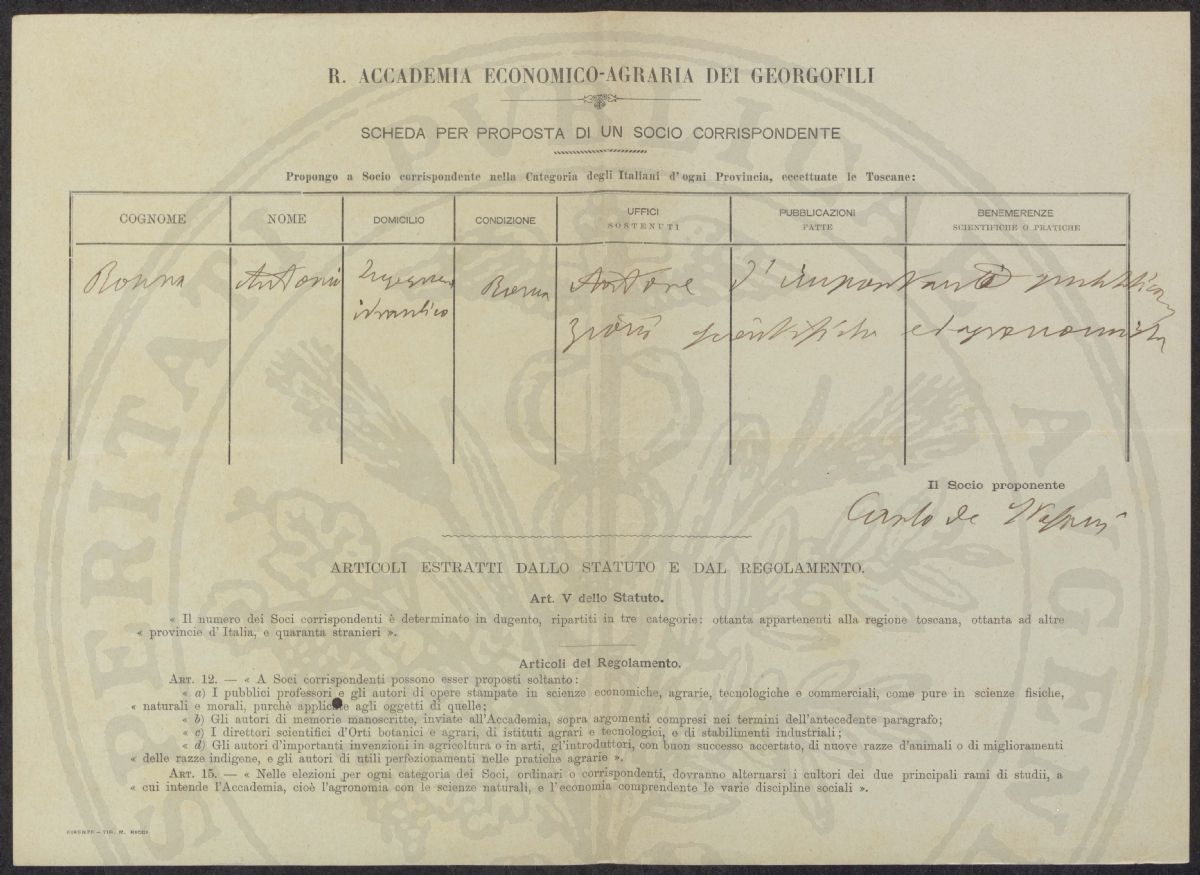 R. ACCADEMIA ECONOMICO-AGRARIA DEI GEORGOFILI
SCHEDA PER PROPOSTA DI UN SOCIO CORRISPONDENTE
Propongo a Socio corrispondente nella Categoria degli Italiani d'ogni Provincia, eccettuate le Toscane:
COGNOME NOME DOMICILIO CONDIZIONE UFFICI SOSTENUTI PUBBLICAZIONI FATTE BENEMERENZE SCIENTIFICHE O PRATICHE
Ronna Antonio Ingegnere Roma Autore d'importanti pubblica
idraulico zioni scientifiche ed agronomiche
Il Socio proponente
Carlo de
ARTICOLI ESTRATTI DALLO STATUTO E DAL REGOLAMENTO.
Art. V dello Statuto.
« Il numero dei Soci corrispondenti è determinato in dugento, ripartiti in tre categorie: ottanta appartenenti alla regione toscana, ottanta ad altre
« provincie d'Italia, e quaranta stranieri ».
Articoli del Regolamento.
ART. 12. — « A Soci corrispondenti possono esser proposti soltanto:
« a) I pubblici professori e gli autori di opere stampate in scienze economiche, agrarie, tecnologiche e commerciali, come pure in scienze fisiche,
« naturali e morali, purchè applicate agli oggetti di quelle;
« b) Gli autori di memorie manoscritte, inviate all'Accademia, sopra argomenti compresi nei termini dell'antecedente paragrafo;
« c) I direttori scientifici d'Orti botanici e agrari, di istituti agrari e tecnologici, e di stabilimenti industriali;
« d) Gli autori d'importanti invenzioni in agricoltura o in arti, gl'introduttori, con buon successo accertato, di nuove razze d'animali o di miglioramenti
« delle razze indigene, e gli autori di utili perfezionamenti nelle pratiche agrarie ».
ART. 15. — « Nelle elezioni per ogni categoria dei Soci, ordinari o corrispondenti, dovranno alternarsi i cultori dei due principali rami di studii, a
« cui intende l'Accademia, cioè l'agronomia con le scienze naturali, e l'economia comprendente le varie discipline sociali ».
FIRENZE – TIP. M. RICCI